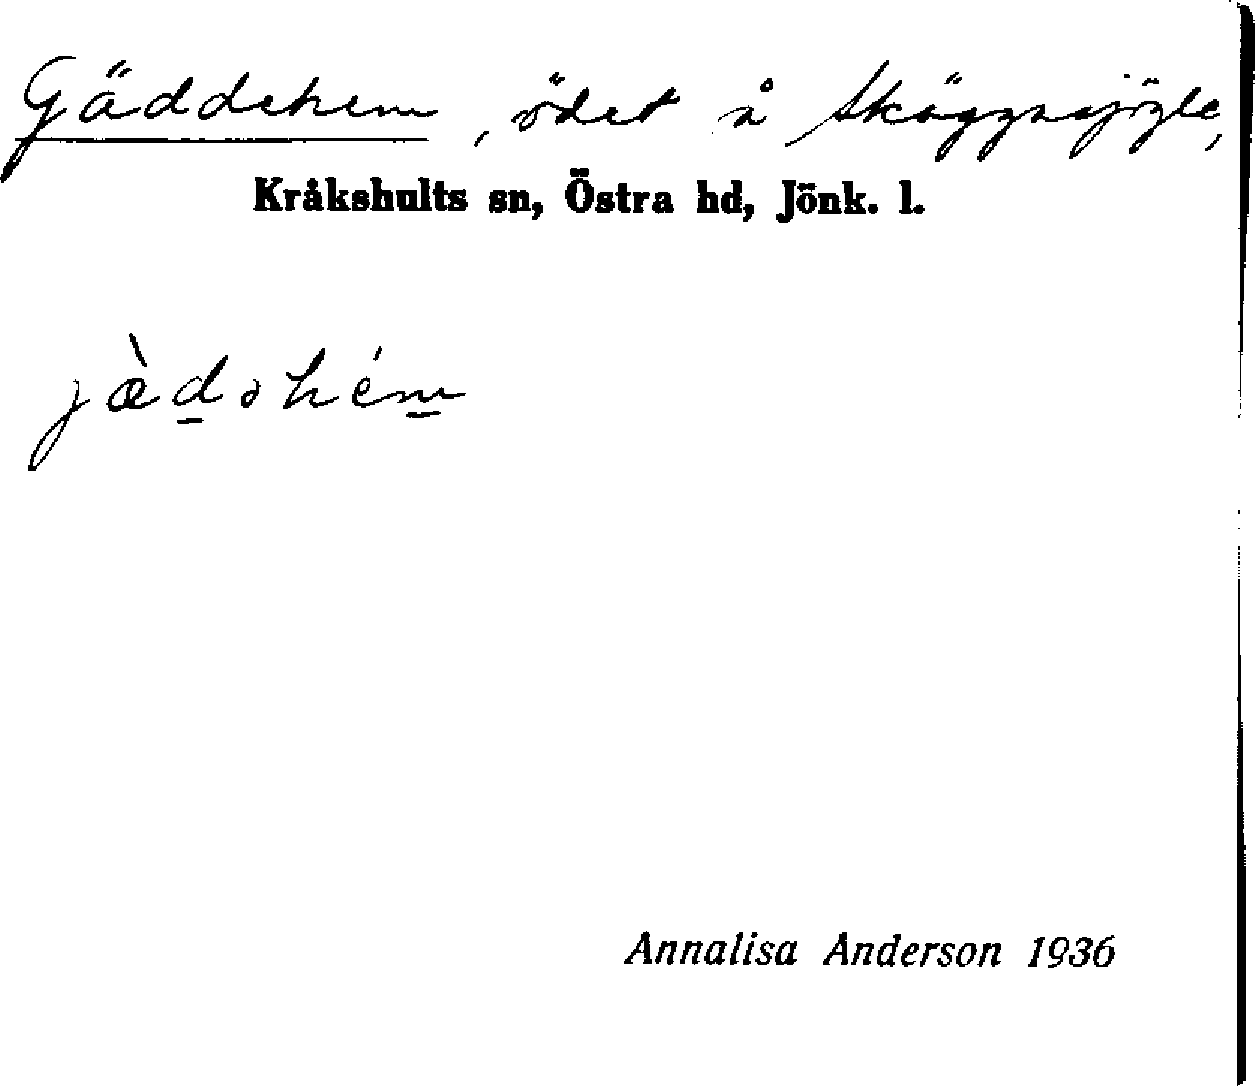 Gäddehem, ödet å
Kråkshults sn, Östra hd, Jönk. l.
jæ̀d̲əhém̲
Annalisa Anderson 1936